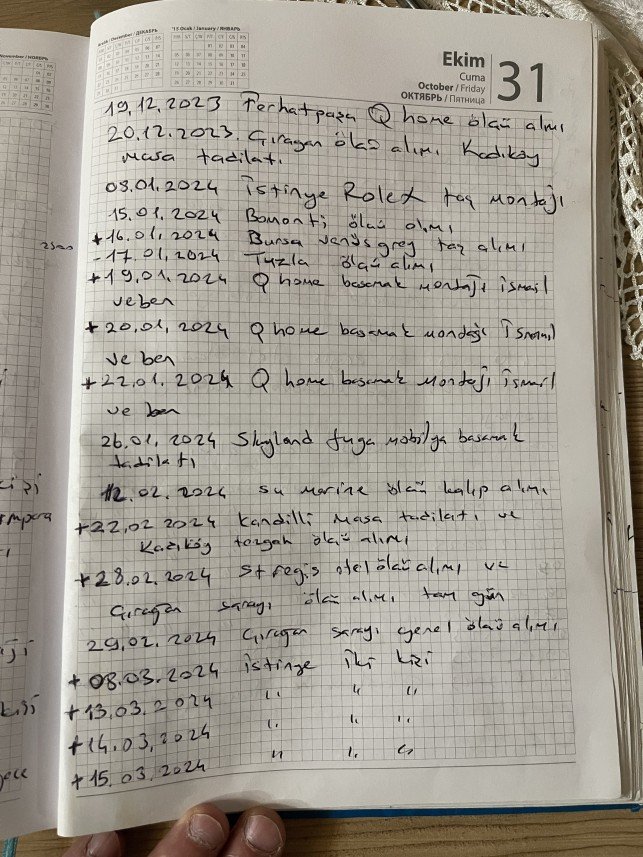 November / НОЯБРЬ
Aralık / December / ДЕКАБРЬ
'15 Ocak / January / ЯНВАРЬ
Ekim
Cuma
October / Friday
ОКТЯБРЬ / Пятница
31
19.12.2023 Ferhatpaşa Q home ölçü alımı
20.12.2023. Çıragan ölçü alımı Kadıköy
masa tadilatı
08.01.2024 İstinye Rolex taş montajı
15.01.2024 Bomonti ölçü alımı
+16.01.2024 Bursa venüs grey taş alımı
-17.01.2024 Tuzla ölçü alımı
+19.01.2024 Q home basamak montajı ismail
ve ben
+20.01.2024 Q home basamak mondajı İsmail
ve ben
+22.01.2024 Q home basamak montajı ismail
ve ben
26.01.2024 Skyland fuga mobilya basamak
tadilatı
12.02.2024 su marine ölçü kalıp alımı
+22.02 2024 kandilli masa tadilatı ve
Kadıköy tezgah ölçü alımı
+28.02.2024 st regis otel ölçü alımı ve
Çıragan sarayı ölçü alımı tam gün
29.02.2024 Çıragan sarayı genel ölçü alımı
+08.03.2024 istinye iki kişi
+13.03.2024 " " "
+14.03.2024 " "
+15.03.2024 " " "